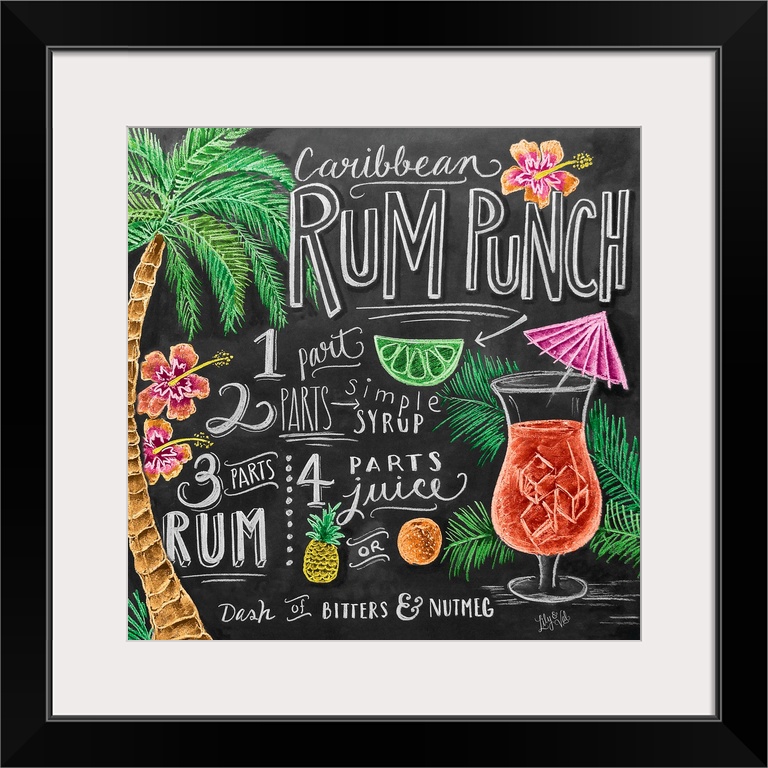 Caribbean
RUM PUNCH
1 part
2 PARTS simple
SYRUP
3 PARTS
RUM
4 PARTS
juice
OR
Dash of BITTERS & NUTMEG
Lily & Val